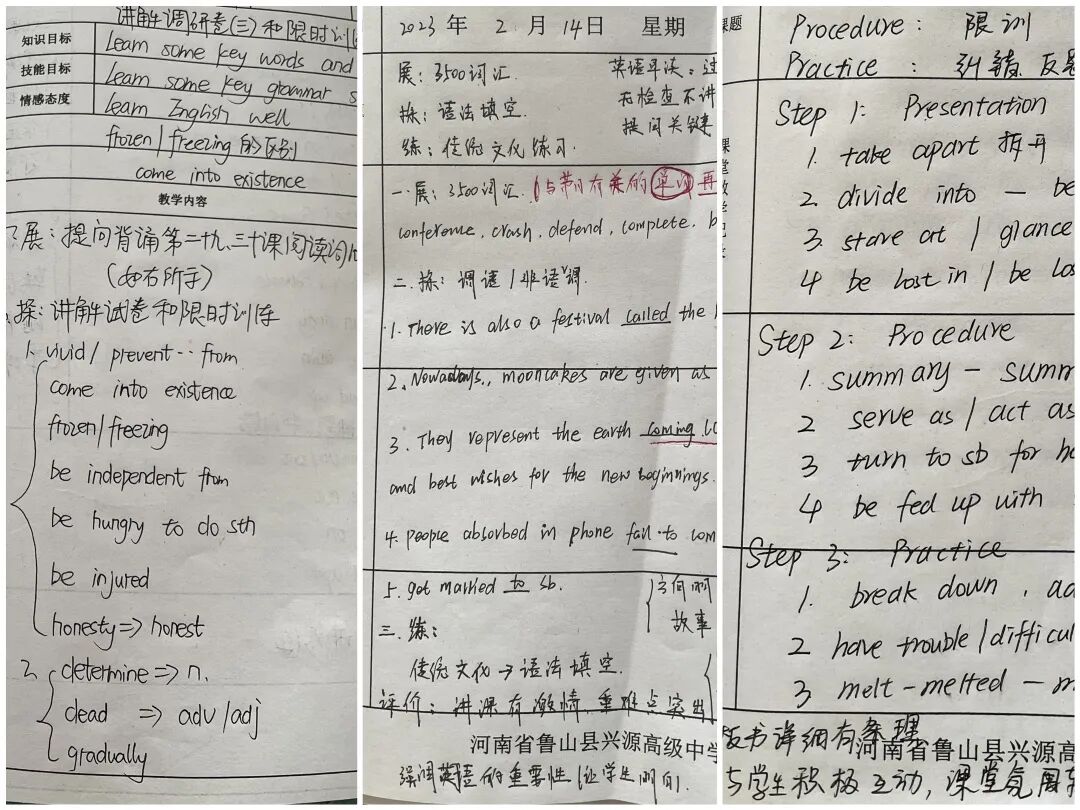 讲解调研卷(三)和限时训练
知识目标 Learn some key words and
技能目标 Learn some key grammar s
情感态度 Learn English well
frozen/freezing 的区别
come into existence
教学内容
展:提问背诵第二十九、三十课阅读词汇
(如右所示)
探:讲解试卷和限时训练
1. vivid / prevent ·· from
come into existence
frozen/freezing
be independent from
be hungry to do sth
be injured
honesty => honest
2. determine => n.
dead => adv/adj
gradually
2023 年 2 月 14日 星期
展:3500词汇.
英语早读:过
拣:语法填空.
无检查不讲
提问关键
练:传统文化练习.
一.展:3500词汇.(与节日有关的单词再
conference, crash, defend, complete, b
二.拣:谓语/非谓语.
1. There is also a festival called the
2. Nowadays, mooncakes are given as
3. They represent the earth coming
and best wishes for the new beginnings.
4. People absorbed in phone fail to com
5. get married to sb.
故事
三.练:
传统文化→语法填空.
评价:讲课有激情,重难点突出
河南省鲁山县兴源高级中学
强调英语的重要性,让学生明白
课题
Procedure: 限训
Practice : 纠错 反思
课堂教学
Step 1: Presentation
1. take apart 拆开
2. divide into — be
3. stare at / glance
4 be lost in / be los
Step 2: Procedure
1. summary — summ
2 serve as / act as
3 turn to sb for he
4 be fed up with
Step 3: Practice
1. break down , ad
2 have trouble/difficul
3 melt-melted — m
板书详细有条理
河南省鲁山县兴源高
与学生积极互动,课堂氛围